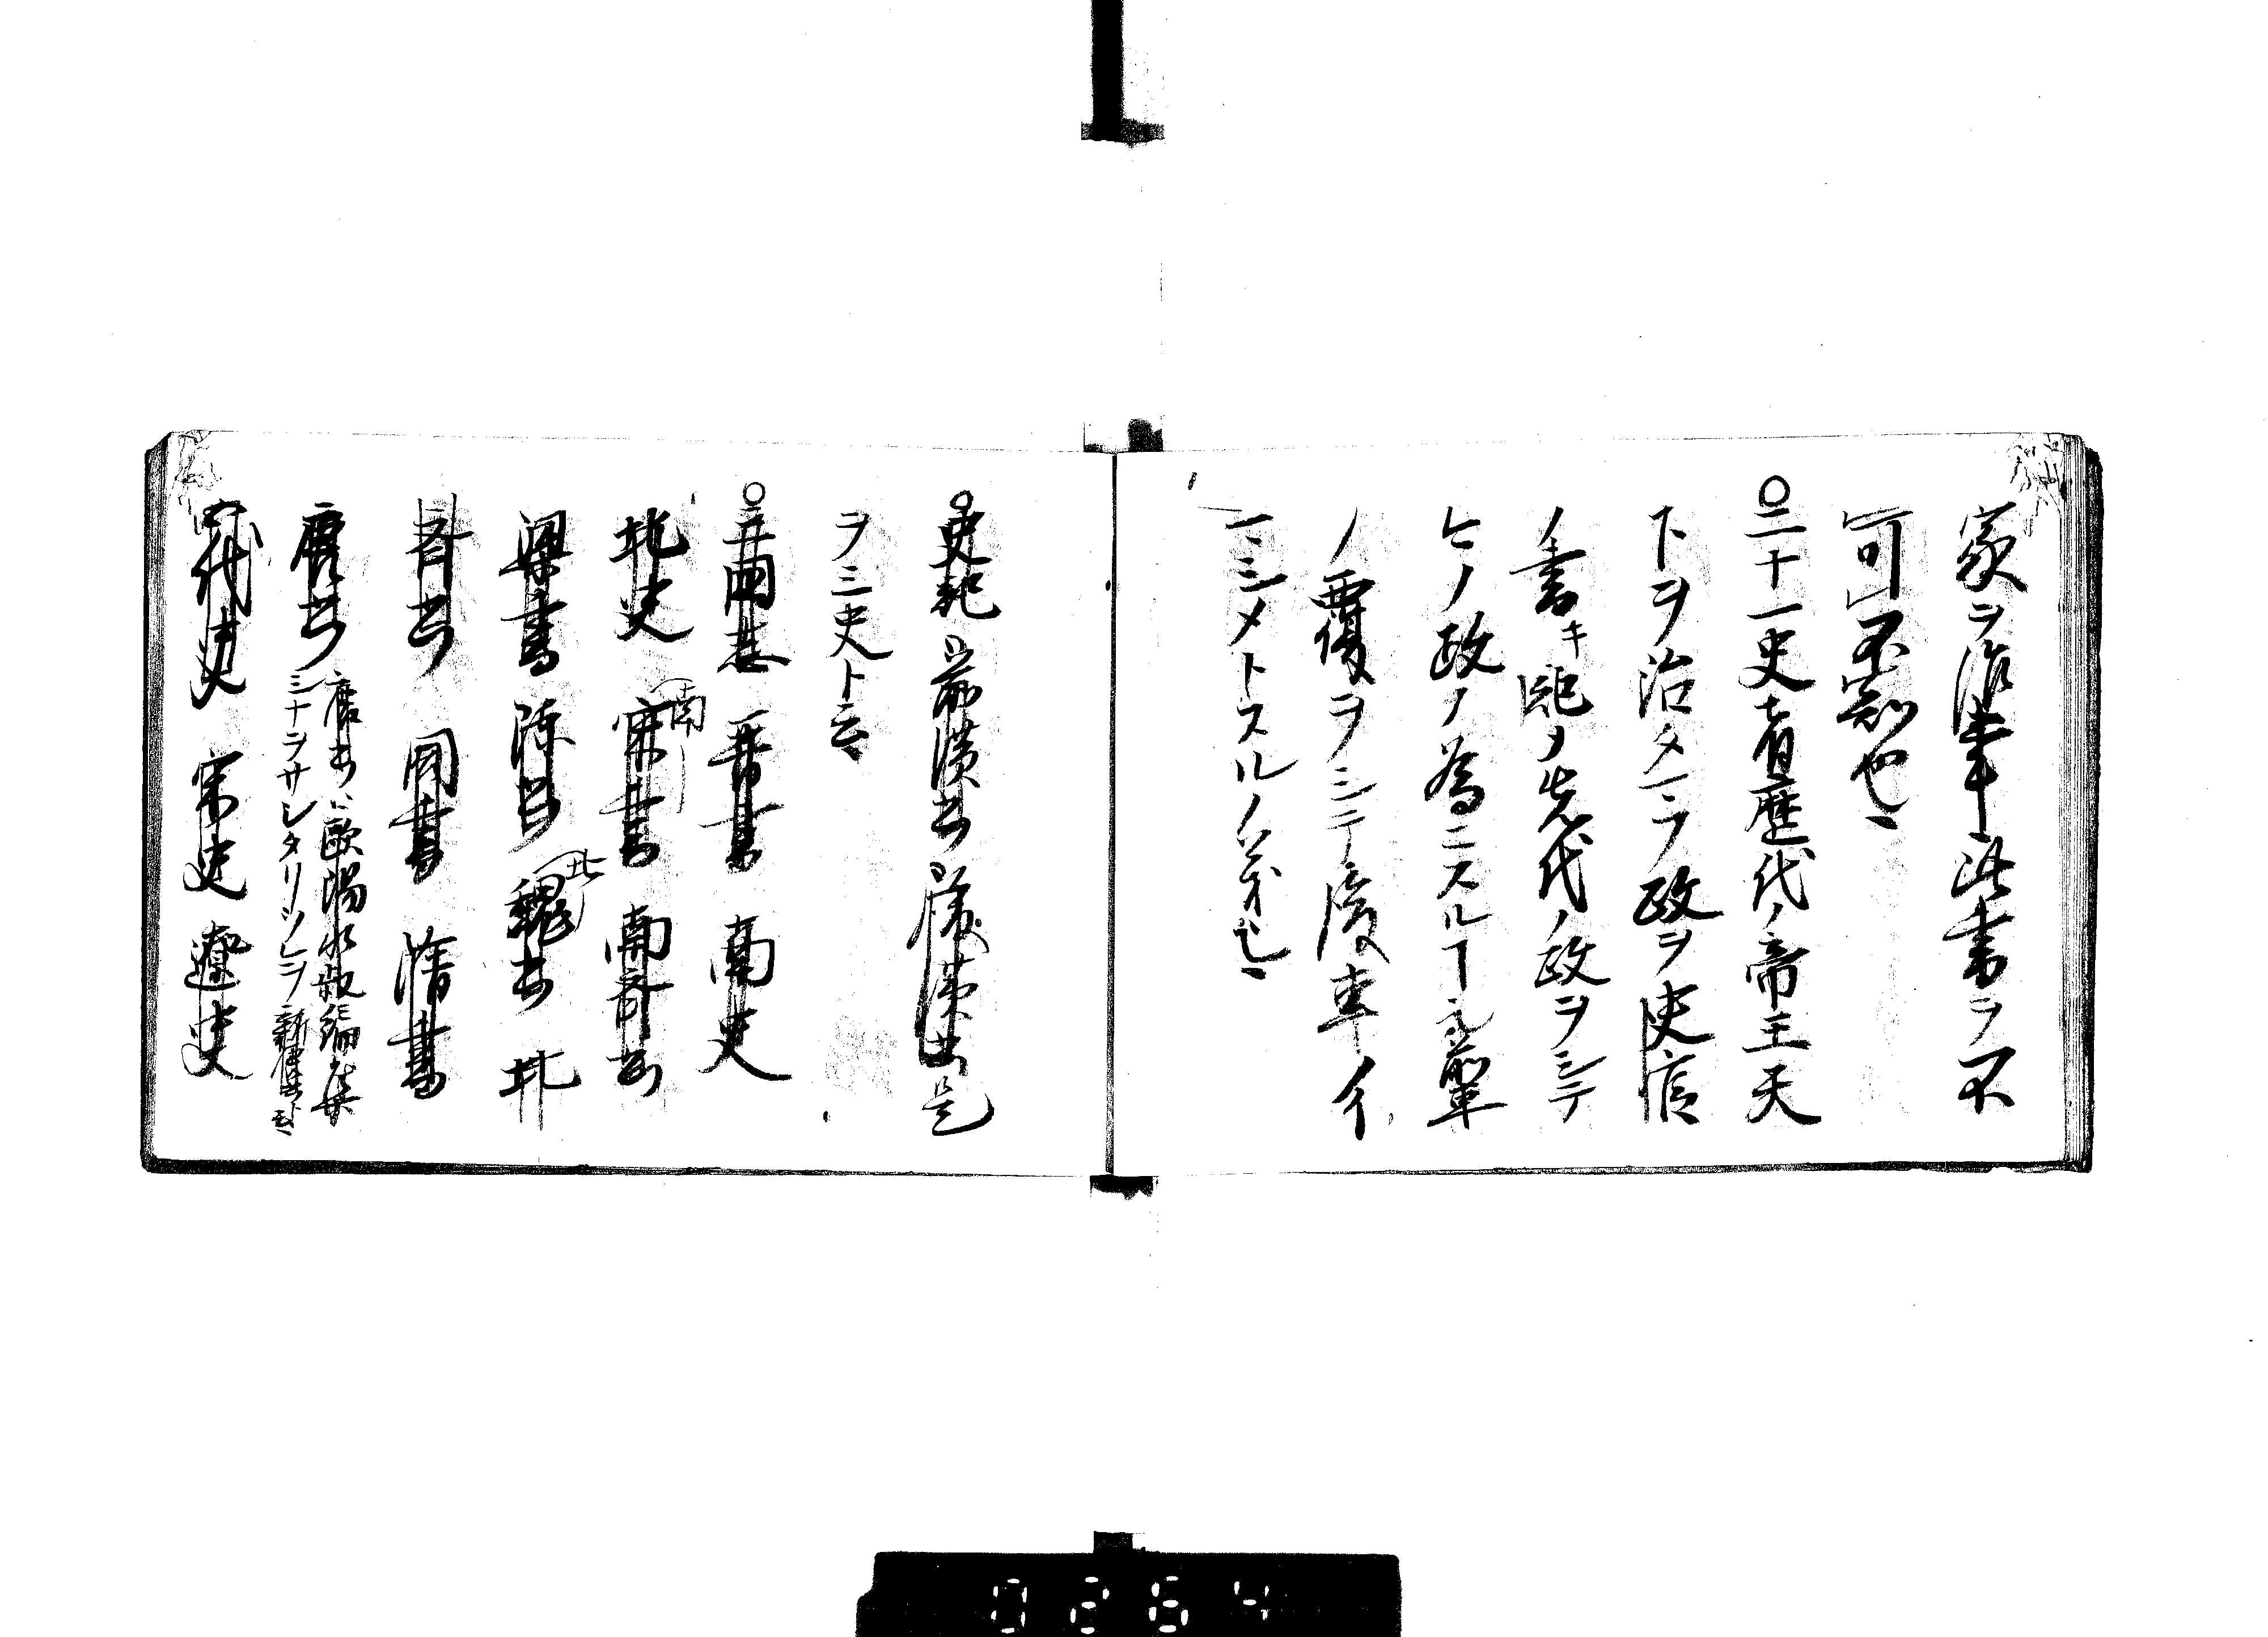 家ヲ治事此書ヲ不
可不知也
〇二十一史者歴代ノ帝王天
下ヲ治タ一ラ政ヲ史官
ノ書キ記ノ先代ノ政ヲシテ
ヒノ政ノ為ニスルヿ前車
ノ覆ヲシテ後車ノイ
マシメトスルノ義也
〇史記 前漢書 後漢書是
ヲ三史ト云
〇三國志 晋書 南史
北史 宋書 南斉書
南
梁書 陳書 魏書 北
北
斉書 周書 隋書
唐書 唐書ハ歐陽水叔編集
シナヲサシタリソレヲ新唐書ト云
五代史 宋史 遼史
0264